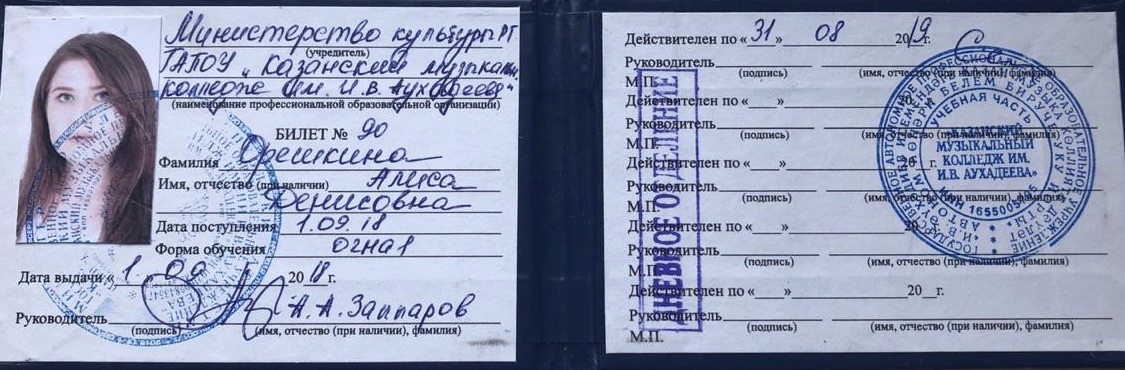 Министерство культуры РТ
(учредитель)
ГАПОУ "Казанский музыкальн.
колледж им. И.В. Аухадеева"
(наименование профессиональной образовательной организации)
БИЛЕТ № 90
Фамилия Орешкина
Имя, отчество (при наличии) Алиса
Денисовна
Дата поступления 1.09.18
Форма обучения очная
Дата выдачи «1» 09 2018 г.
Руководитель А.А. Заппаров
(подпись) (имя, отчество (при наличии), фамилия)
Действителен по «31» 08 2019 г.
Руководитель
(подпись) (имя, отчество (при наличии), фамилия)
М.П.
Действителен по «__» 20
Руководитель
(подпись) (имя, отчество (при наличии), фамилия)
М.П.
Действителен по «__» 20 г.
Руководитель
(подпись) (имя, отчество (при наличии), фамилия)
М.П.
Действителен по «__» 20
Руководитель
(подпись) (имя, отчество (при наличии), фамилия)
М.П.
Действителен по «__» 20__г.
Руководитель
(подпись) (имя, отчество (при наличии), фамилия)
М.П.
ДНЕВНОЕ ОТДЕЛЕНИЕ
УЧЕБНАЯ ЧАСТЬ
«КАЗАНСКИЙ
МУЗЫКАЛЬНЫЙ
КОЛЛЕДЖ ИМ.
И.В. АУХАДЕЕВА»